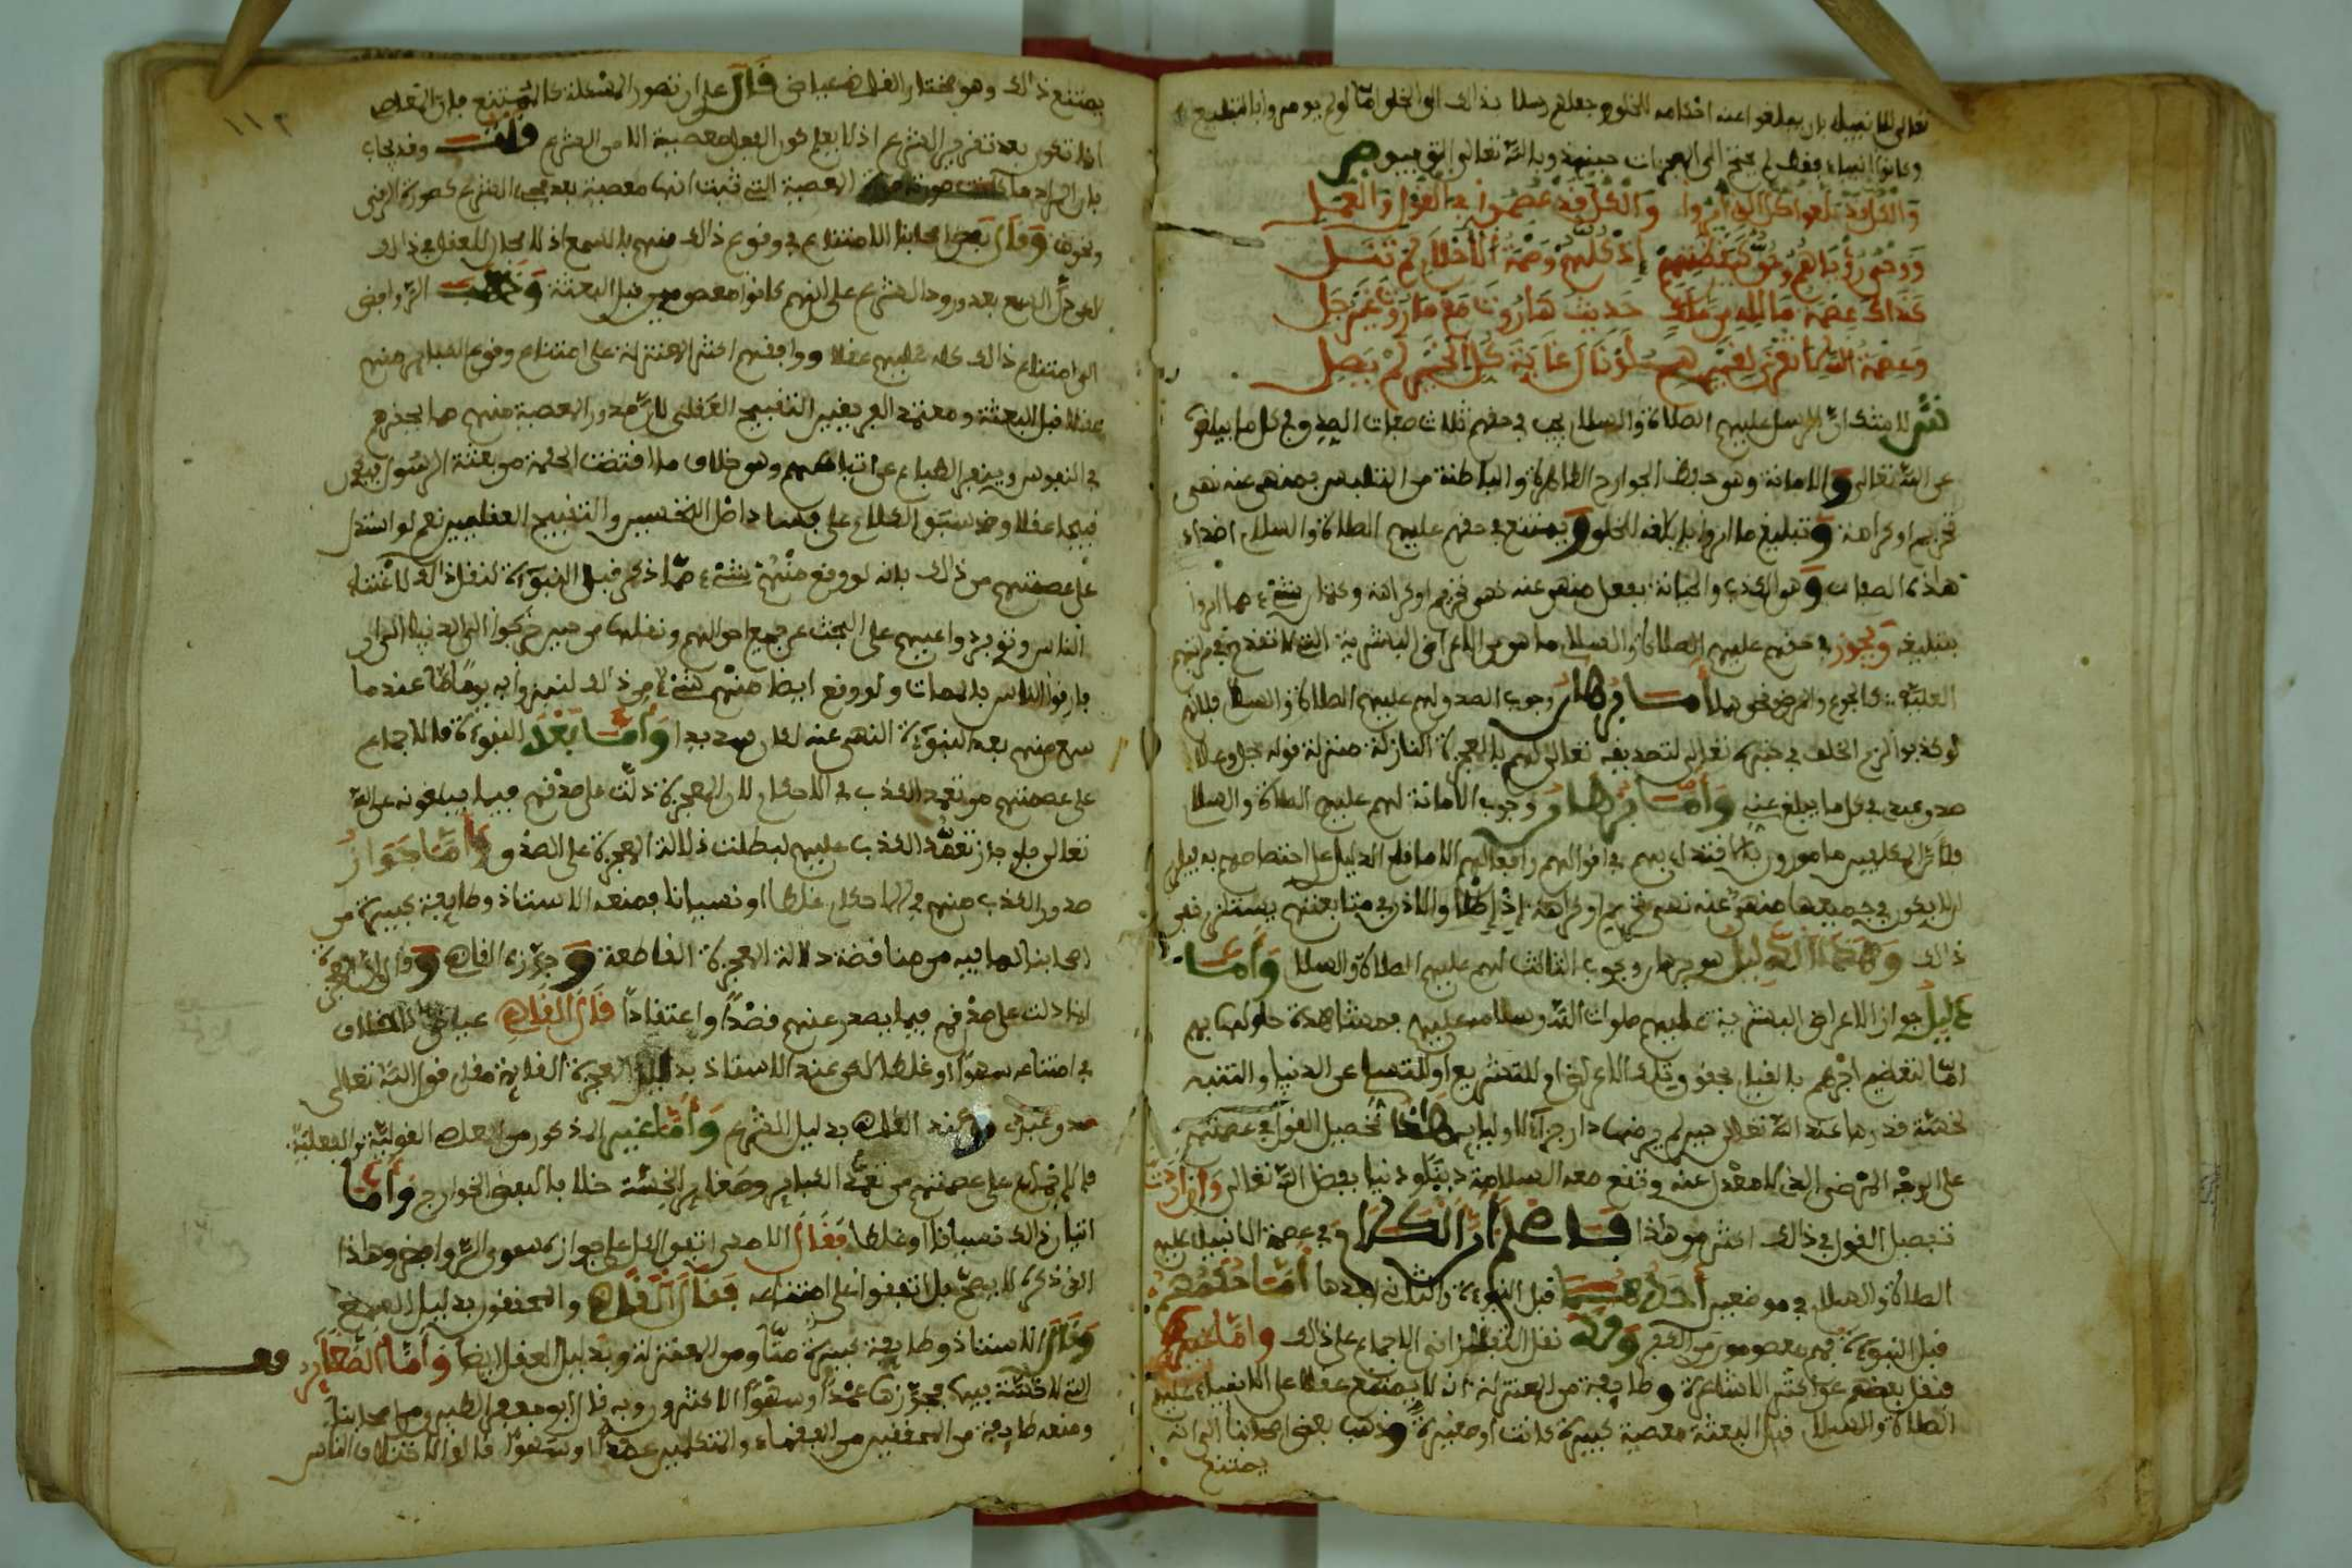 تعالى للأنبياء بأن يبلغوا عنه أحكامه للخلق جعلهم رسلا بذلك إلى الخلق أما لو لم يومروا بالتبليغ
وكانوا أنبياء فقط لم يحتج إلى المعجزات حينئذ وبالله تعالى التوفيق ص
والكل قد بلغوا كل الذي أمروا والكل قد عصموا في القول والعمل
كذاك عصمة مال لله من ملك حديث هاروت مع ماروت عن رجل
وعصمة الله لا تعزى لغيرهم لو نال غاية كل الخير لم يصل
ش لا شك أن الرسل عليهم الصلاة والسلام يجب في حقهم ثلاث صفات الصدق في كل ما يبلغون
عن الله تعالى والأمانة وهو حفظ الجوارح الظاهرة والباطنة من التلبس بمنهي عنه نهي
تحريم أو كراهة وتبليغ ما أمروا بإبلاغه للخلق ويمتنع في حقهم عليهم الصلاة والسلام أضداد
هذه الصفات وهو الكذب والخيانة بفعل منهي عنه نهي تحريم أو كراهة وكتمان شيء مما أمروا
بتبليغه ويجوز في حقهم عليهم الصلاة والسلام ما هو من الأعراض البشرية التي لا تقدح في مرتبتهم
العلية كالجوع والمرض ونحوهما أما برهان وجوب الصدق لهم عليهم الصلاة والسلام فلأنهم
لو كذبوا لزم الخلف في خبره تعالى لتصديقه تعالى لهم بالمعجزة النازلة منزلة قوله جل وعلا
صدق عبدي في كل ما يبلغ عني وأما برهان وجوب الأمانة لهم عليهم الصلاة والسلام
فلأن المكلفين مامورون بالاقتداء بهم في أقوالهم وأفعالهم إلا ما قام الدليل على اختصاصهم به فيلزم
أن لا يكون في جميعها منهي عنه نهي تحريم أو كراهة إذ إطلاق الإذن في متابعتهم يستلزم نفي
ذلك وهذا الدليل هو برهان وجوب الثالث لهم عليهم الصلاة والسلام وأما
دليل جواز الأعراض البشرية عليهم صلوات الله وسلامه عليهم فمشاهدة حلولها بهم
إما لتعظيم أجرهم بالقيام بحقوق تلك الأعراض أو للتشريع أو للتسلي عن الدنيا والتنبه
لخسة قدرها عند الله تعالى حين لم يرضها دار جزاء لأوليائه هذا تحصيل القول في عصمتهم
على الوجه المرضي الذي لا معدل عنه وتقع معه السلامة دينا ودنيا بفضل الله تعالى وإن أردت
تفصيل القول في ذلك أكثر من هذا فاعلم أن الكلام في عصمة الأنبياء عليهم
الصلاة والسلام في موضعين أحدهما قبل النبوءة والثاني بعدها أما حكمهم
قبل النبوءة فهم معصومون من الكفر وقد نقل التفتازاني الإجماع على ذلك وأما غيره
فنقل بعضهم عن أكثر الأشاعرة وطائفة من المعتزلة أنه لا يمتنع عقلا على الأنبياء عليهم
الصلاة والسلام قبل البعثة معصية كبيرة كانت أو صغيرة وذهب بعض أصحابنا إلى أنه
يمتنع
١١٢
يمتنع ذلك وهو مختار القاضي عياض قال على أن تصور المسئلة كالممتنع فإن المعاصي
إنما تكون بعد تقرير الشرع إذ لا يعلم كون الفعل معصية إلا من الشرع قلت وقد يجاب
بأن المراد ما كانت صورته صورة المعصية التي ثبت أنها معصية بعد مجيء الشرع كصورة الزنى
ونحوه وقال بعض أصحابنا الامتناع في وقوع ذلك منهم بالسمع إذ لا مجال للعقل في ذلك
لكن دل السمع بعد ورود الشرع على أنهم كانوا معصومين قبل البعثة وذهبت الروافض
إلى امتناع ذلك كله عليهم عقلا ووافقهم أكثر المعتزلة على امتناع وقوع الكبائر منهم
عقلا قبل البعثة ومعتمد الفريقين التقبيح العقلي لأن صدور المعصية منهم مما يحقرهم
في النفوس وينفر الطباع عن اتباعهم وهو خلاف ما اقتضت الحكمة من بعثة الرسول فيكون
قبيحا عقلا وقد سبق الكلام على فساد أصل التحسين والتقبيح العقليين نعم لو استدل
على عصمتهم من ذلك بأنه لو وقع منهم شيء مما ذكر قبل النبوءة لنقل ذلك لاعتناء
الناس وتوفر دواعيهم على البحث عن جميع أحوالهم ونقلها من حين خرجوا إلى الدنيا إلى أن
فارقوا الناس بالممات ولو وقع أيضا منهم شيء من ذلك لنبزوا به يوما ما عندما
سمع منهم بعد النبوءة النهي عنه لكان سديدا وأما بعد النبوءة فالإجماع
على عصمتهم من تعمد الكذب في الأحكام لأن المعجزة دلت على صدقهم فيما يبلغونه عن الله
تعالى فلو جاز تعمد الكذب عليهم لبطلت دلالة المعجزة على الصدق وأما جواز
صدور الكذب منهم في الأحكام غلطا أو نسيانا فمنعه الأستاذ وطائفة كثيرة من
أصحابنا لما فيه من مناقضة دلالة المعجزة القاطعة وجوزه القاضي وقال إن المعجزة
إنما دلت على صدقهم فيما يصدر عنهم قصدا واعتقادا قال القاضي عياض لا خلاف
في امتناعه سهوا أو غلطا لكن عند الأستاذ بدليل المعجزة القائمة مقام قول الله تعالى
صدق عبدي وعند القاضي بدليل الشرع وأما غير المذكور من المعاصي القولية والفعلية
فالإجماع على عصمتهم من تعمد الكبائر وصغائر الخسة خلافا لبعض الخوارج وأما
إتيان ذلك نسيانا أو غلطا فقال الآمدي اتفق الكل على جوازه سوى الروافض وهذا
الذي ذكره لا يصح بل اتفقوا على امتناعه فقال القاضي والمحققون بدليل السمع
وقال الأستاذ وطائفة كثيرة منا ومن المعتزلة وبدليل العقل أيضا وأما الصغائر
التي لا خسة فيها فجوزها عمدا وسهوا الأكثرون وبه قال أبو جعفر الطبري من أصحابنا
ومنعه طائفة من المحققين من الفقهاء والمتكلمين عمدا وسهوا قالوا لاختلاف الناس